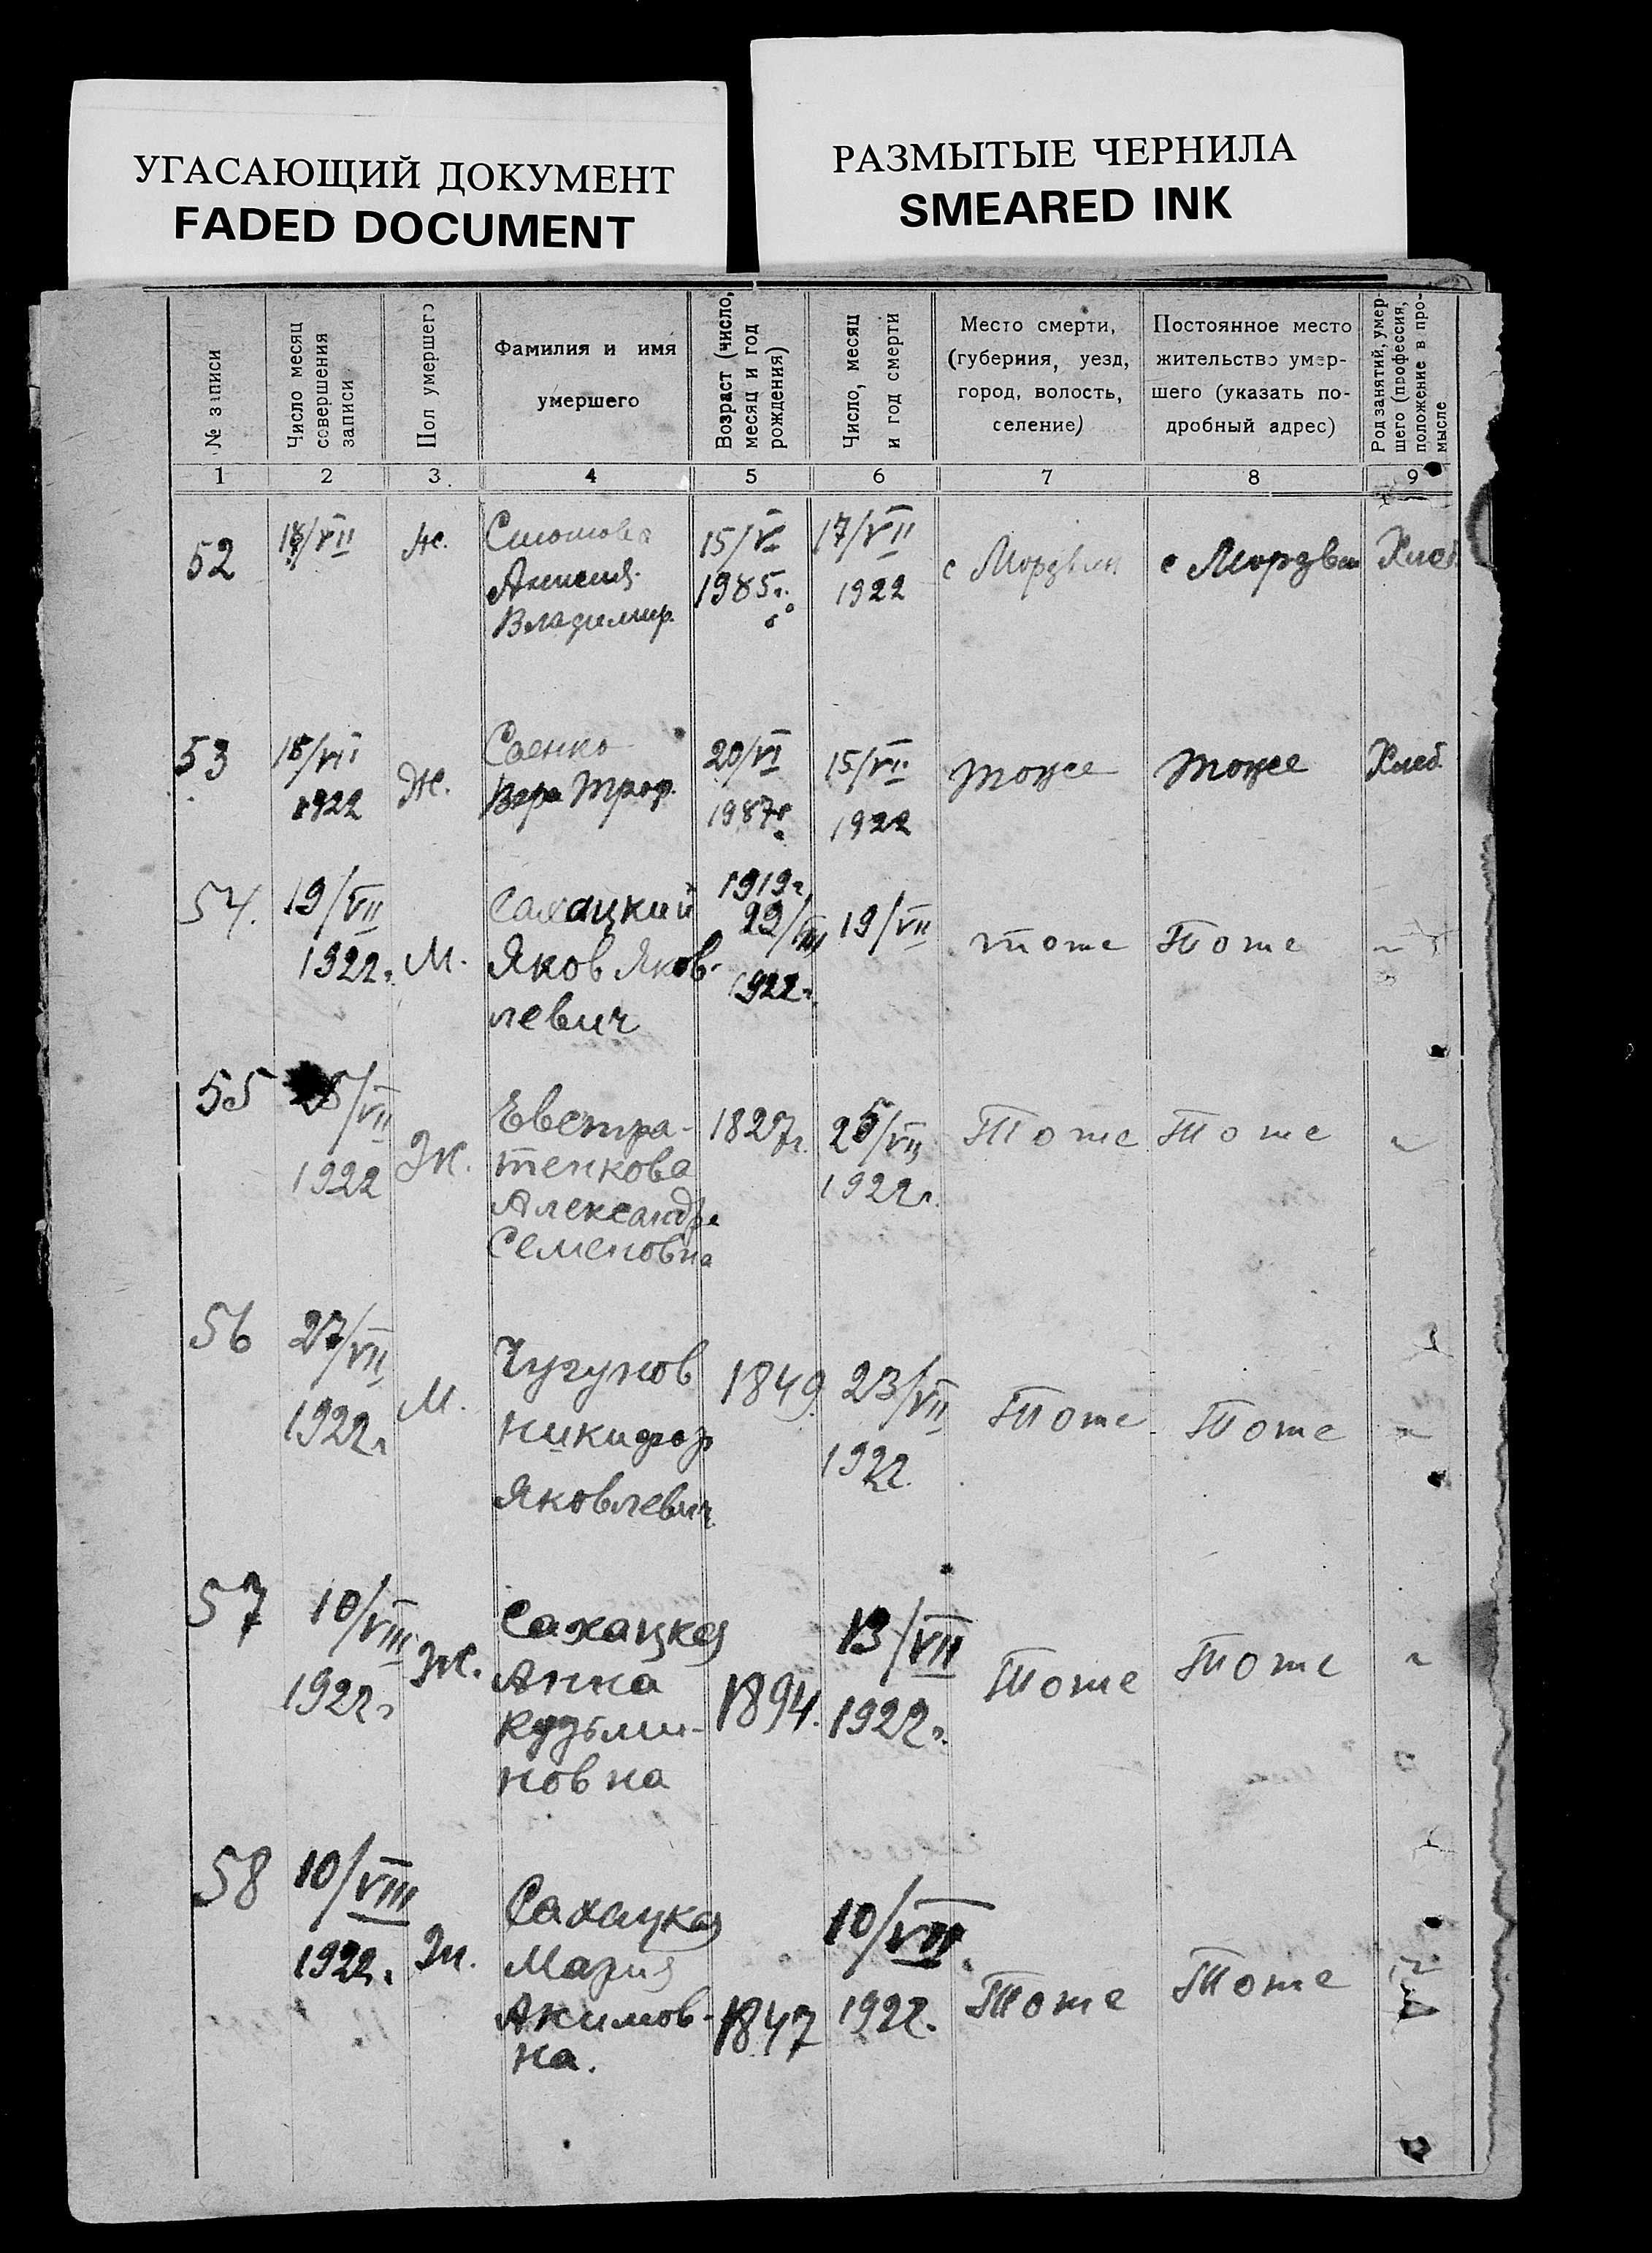 УГАСАЮЩИЙ ДОКУМЕНТ
FADED DOCUMENT
РАЗМЫТЫЕ ЧЕРНИЛА
SMEARED INK
№ записи
Число месяц
совершения
записи
Пол умершего
Фамилия и имя
умершего
Возраст (число,
месяц и год
рождения)
Число, месяц
и год смерти
Место смерти,
(губерния, уезд,
город, волость,
селение)
Постоянное место
жительство умер-
шего (указать по-
дробный адрес)
Род занятий, умер-
шего (профессия,
положение в про-
мысле
1 2 3 4 5 6 7 8 9
52
/VII
Ж.
Владимир.
15/V
1985г.
17/VII
1922
с
с
Хлеб
53
/VII
1922
Ж.
Саенко
Вера Троф.
20/VI
1987г
15/VII
1922
тоже
тоже
Хлеб
54.
19/VII
1922г.
М.
Сахацкий
Яков Яков-
левич
1919г
29/
1922г.
19/VII
тоже
Тоже
55
/VII
1922
Ж.
Евстра-
тенкова
Александра
Семеновна
1827г.
25/VII
1922г.
Тоже
Тоже
56
27/VII
1922г
М.
Чугунов
Никифор
Яковлевич
1849.
23/VII
1922.
Тоже
Тоже
57
10/VIII
1922г
Ж.
Сахацкая
Анна
Кузьми-
новна
1894.
13/VII
1922г.
Тоже
Тоже
58
10/VIII
1922г.
Ж.
Сахацкая
Мария
Акимов-
на.
1847
10/VII
1922.
Тоже
Тоже